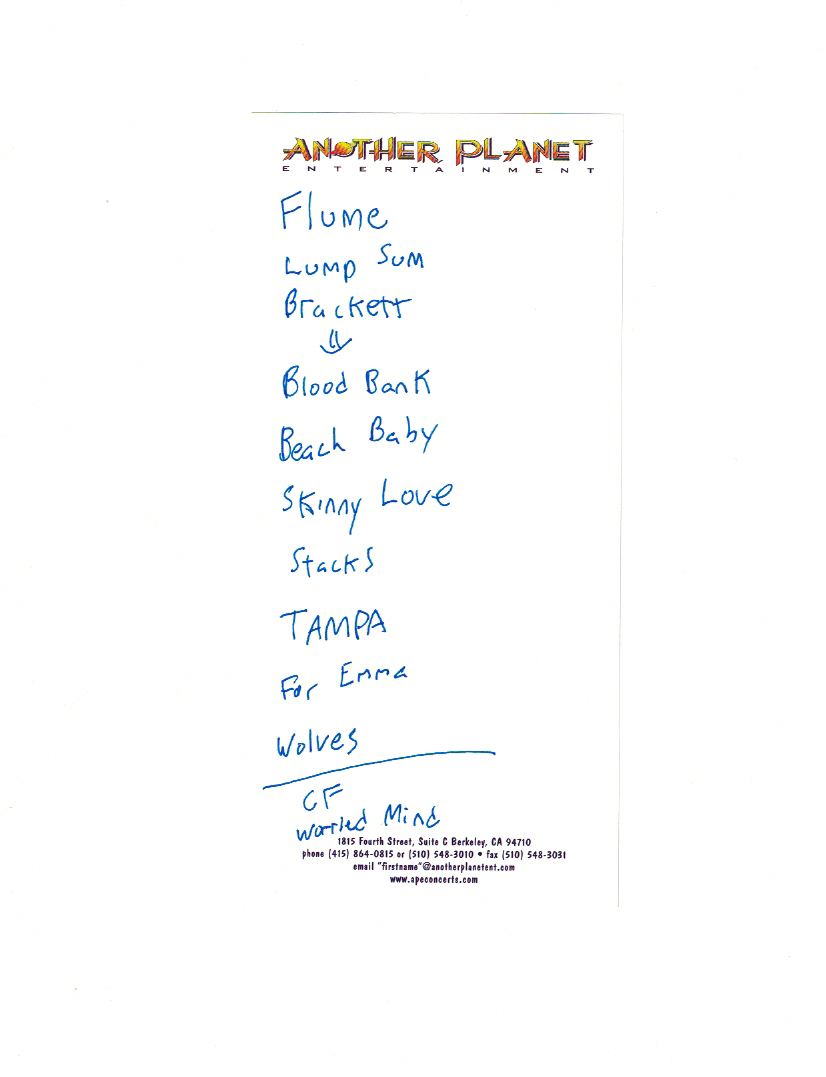 ANOTHER PLANET
ENTERTAINMENT
Flume
Lump Sum
Brackett
Blood Bank
Beach Baby
Skinny Love
Stacks
TAMPA
For Emma
Wolves
CF
Worried Mind
1815 Fourth Street, Suite C Berkeley, CA 94710
phone (415) 864-0815 or (510) 548-3010 • fax (510) 548-3031
email "firstname"@anotherplanetent.com
www.apeconcerts.com